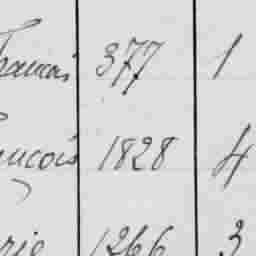 François 377 1
ançois 1828 4
rie 1266 3